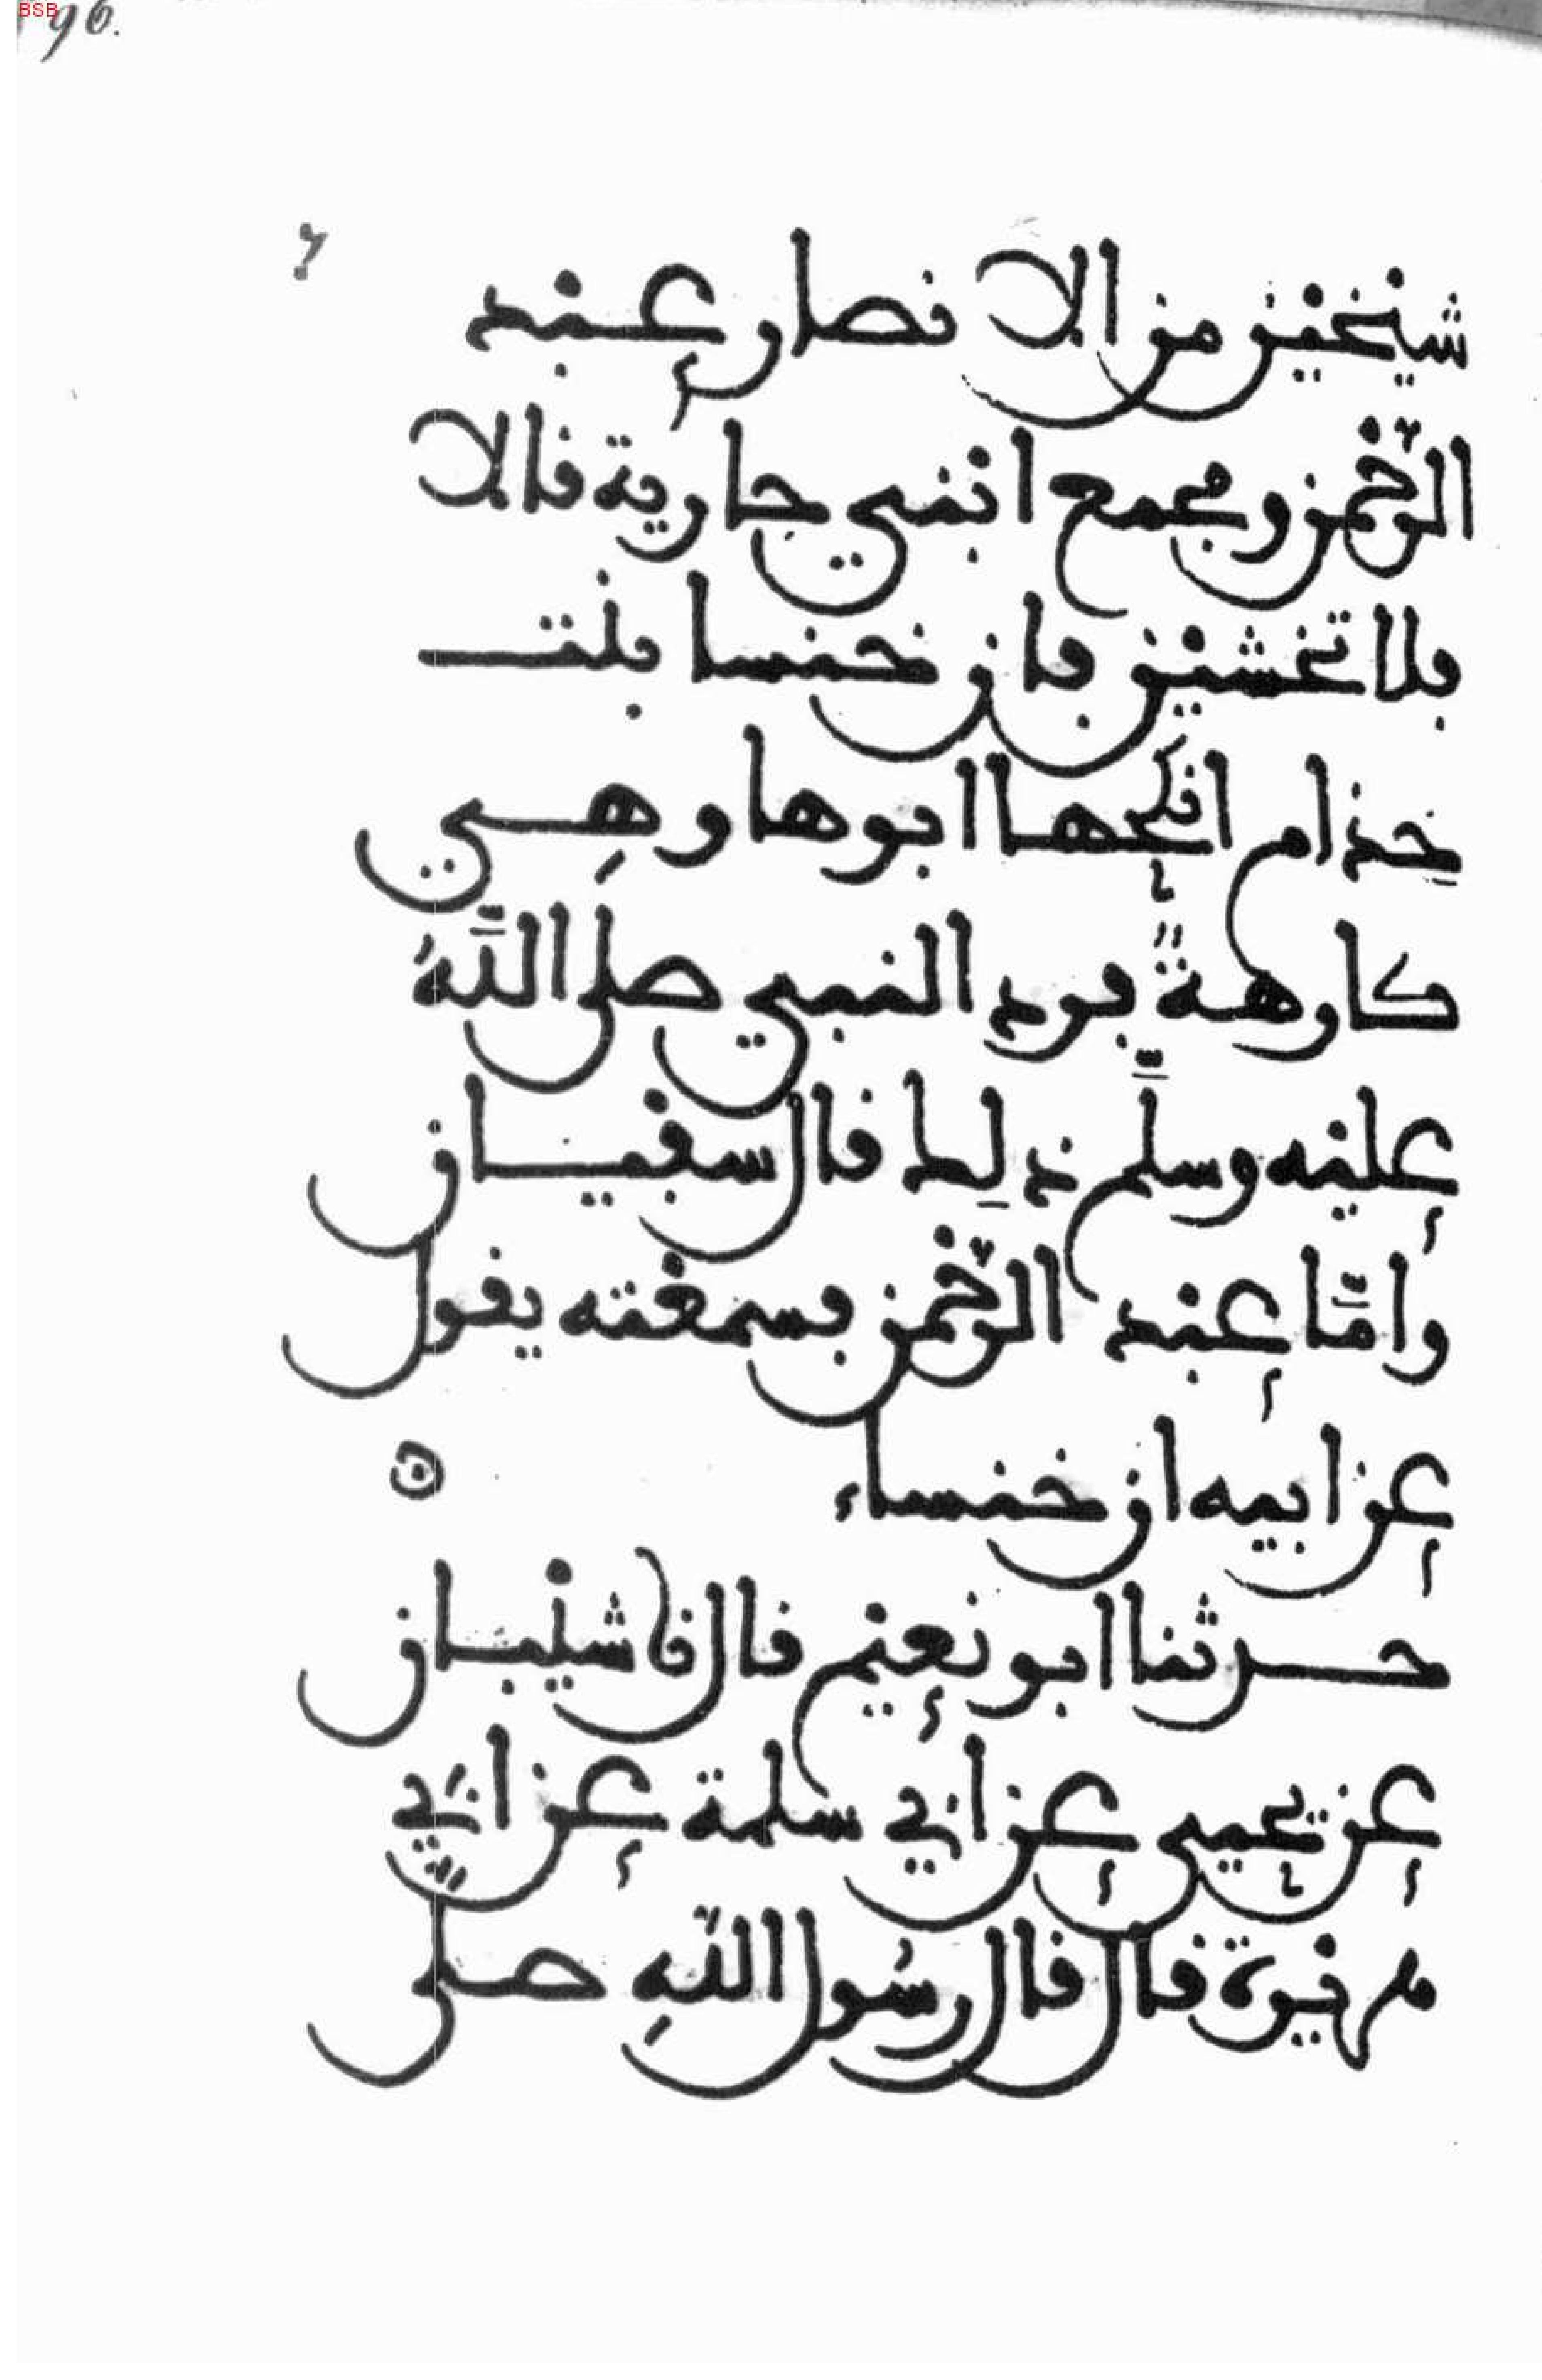 BSB
96.
شيخين من الانصار عبد
الرحمن ومجمع ابني جارية قالا
فلا تخشين فان خنسا بنت
خذام انكحها ابوها وهي
كارهةً فرد النبي صلى اللَّهُ
عليه وسلَّم ذلِك قال سفيان
وامَّا عبد الرّحمن فسمعته يقول
عن ابيه ان خنساء
حدثنا ابو نعيم قال نا شيبان
عن يحيى عن ابي سلمة عن ابي
هريرة قال قال رسُول اللّهِ صلى